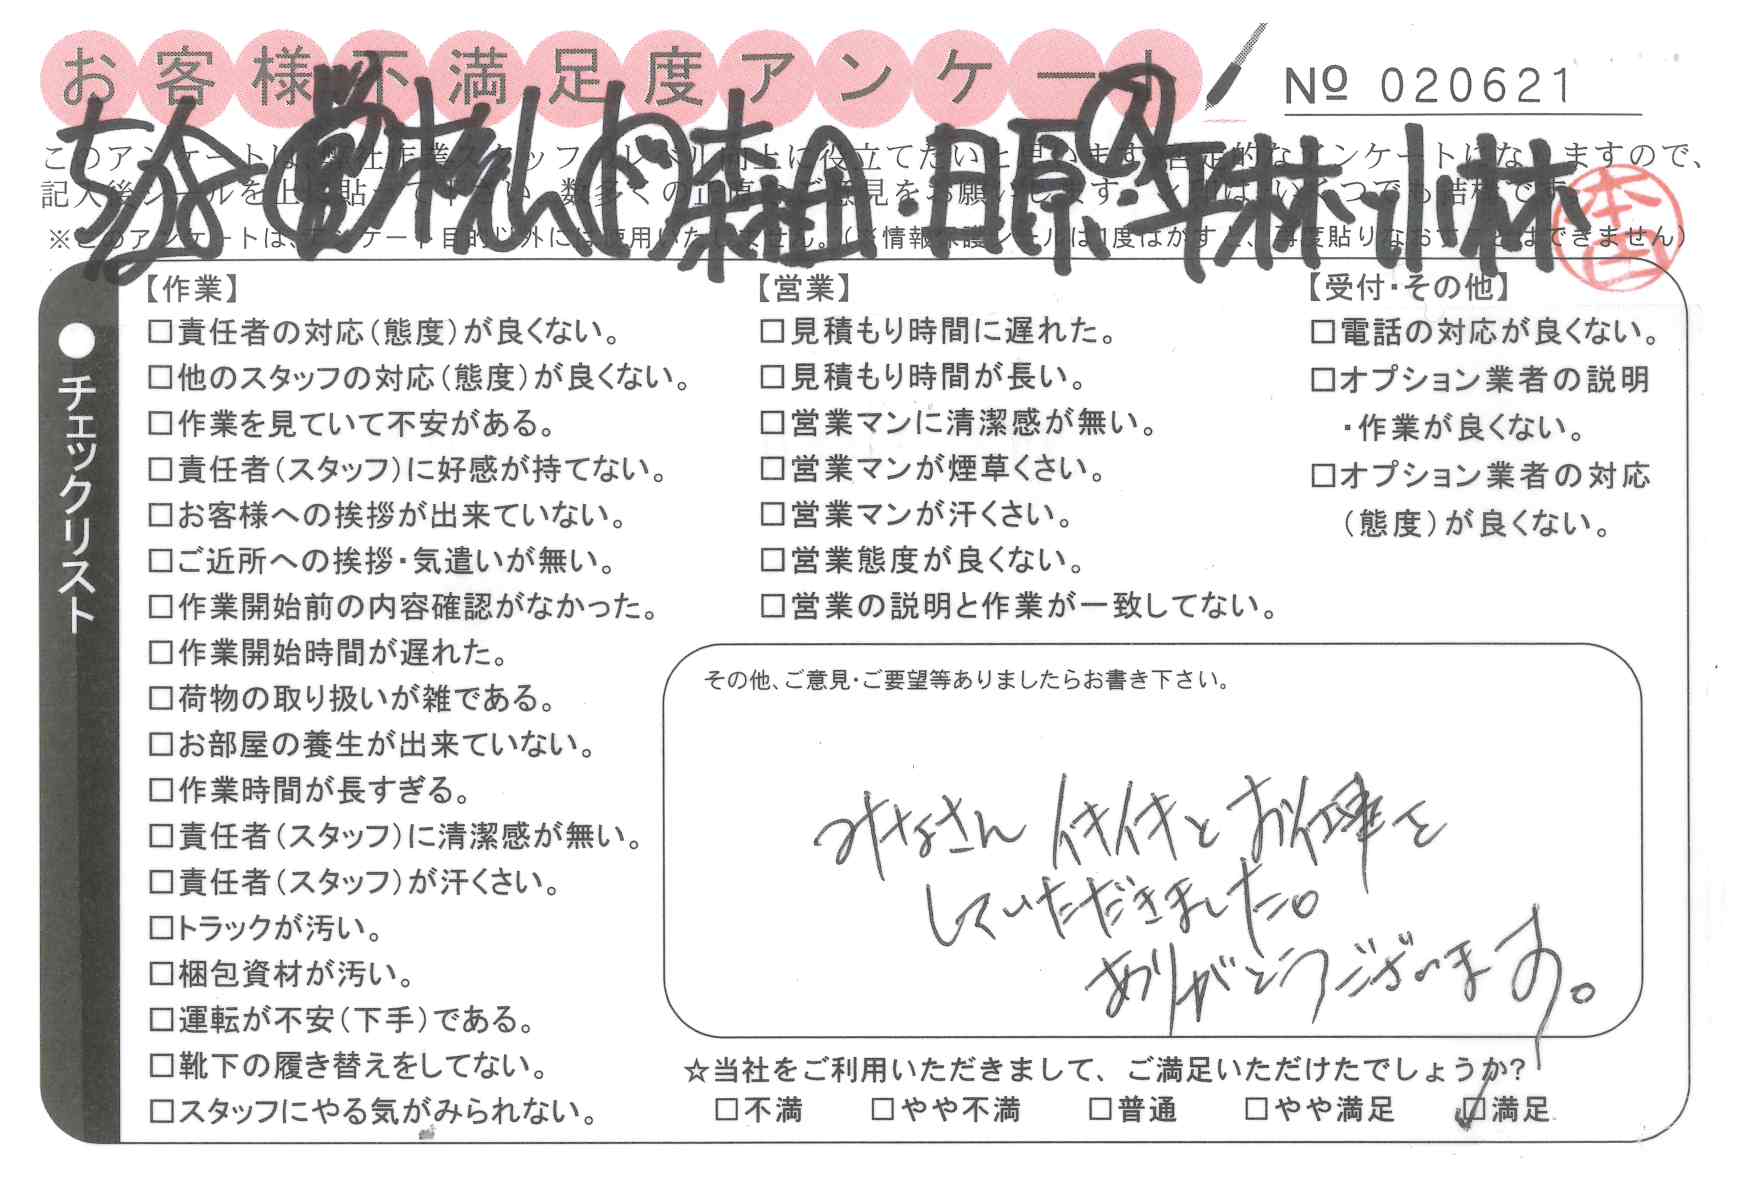 お客様不満足度アンケート
№ 020621
このアンケートは、弊社作業スタッフのレベル向上に役立てたいと思います。否定的なアンケートになりますので、
記入後シールを上に貼って下さい。数多くの正直なご意見をお願いします。
※このアンケートは、アンケート目的以外には使用いたしません。(※情報保護シールは1度はがすと、再度貼りなおすことはできません)
森田・日原・平林・小林
●チェックリスト
【作業】
□責任者の対応(態度)が良くない。
□他のスタッフの対応(態度)が良くない。
□作業を見ていて不安がある。
□責任者(スタッフ)に好感が持てない。
□お客様への挨拶が出来ていない。
□ご近所への挨拶・気遣いが無い。
□作業開始前の内容確認がなかった。
□作業開始時間が遅れた。
□荷物の取り扱いが雑である。
□お部屋の養生が出来ていない。
□作業時間が長すぎる。
□責任者(スタッフ)に清潔感が無い。
□責任者(スタッフ)が汗くさい。
□トラックが汚い。
□梱包資材が汚い。
□運転が不安(下手)である。
□靴下の履き替えをしてない。
□スタッフにやる気がみられない。
【営業】
□見積もり時間に遅れた。
□見積もり時間が長い。
□営業マンに清潔感が無い。
□営業マンが煙草くさい。
□営業マンが汗くさい。
□営業態度が良くない。
□営業の説明と作業が一致してない。
【受付・その他】
□電話の対応が良くない。
□オプション業者の説明
・作業が良くない。
□オプション業者の対応
(態度)が良くない。
その他、ご意見・ご要望等ありましたらお書き下さい。
みなさん イキイキと お仕事を
していただきました。
ありがとうございます。
☆当社をご利用いただきまして、ご満足いただけたでしょうか?
□不満 □やや不満 □普通 □やや満足 ☑満足